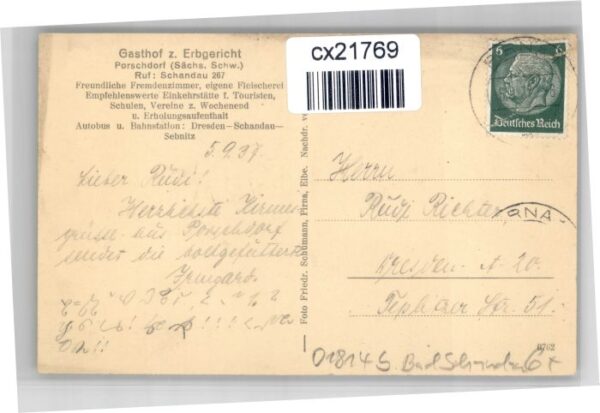 Gasthof z. Erbgericht
Porschdorf (Sächs. Schw.)
Ruf: Schandau 267
Freundliche Fremdenzimmer, eigene Fleischerei
Empfehlenswerte Einkehrstätte f. Touristen,
Schulen, Vereine z. Wochenend
u. Erholungsaufenthalt
Autobus u. Bahnstation: Dresden—Schandau—
Sebnitz
5.9.37
Lieber Rudi!
Herzlichste Kirmes
grüsse aus Porschdorf
sendet die vollgefutterte
Irmgard.
Foto Friedr. Schumann, Pirna, Elbe. Nachdr. ve
cx21769
6
Deutsches Reich
RNA
Herrn
Rudi Richter
Dresden A. 20
Str. 51.
9762
01814 S. Bad Schandau 6x